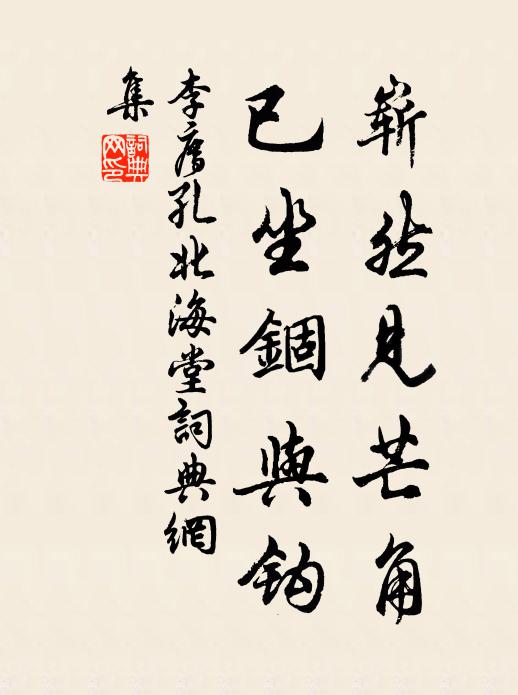 嶄然見芒角
已坐錮與鈎
李廌孔北海堂詞典網
集
詞典網印